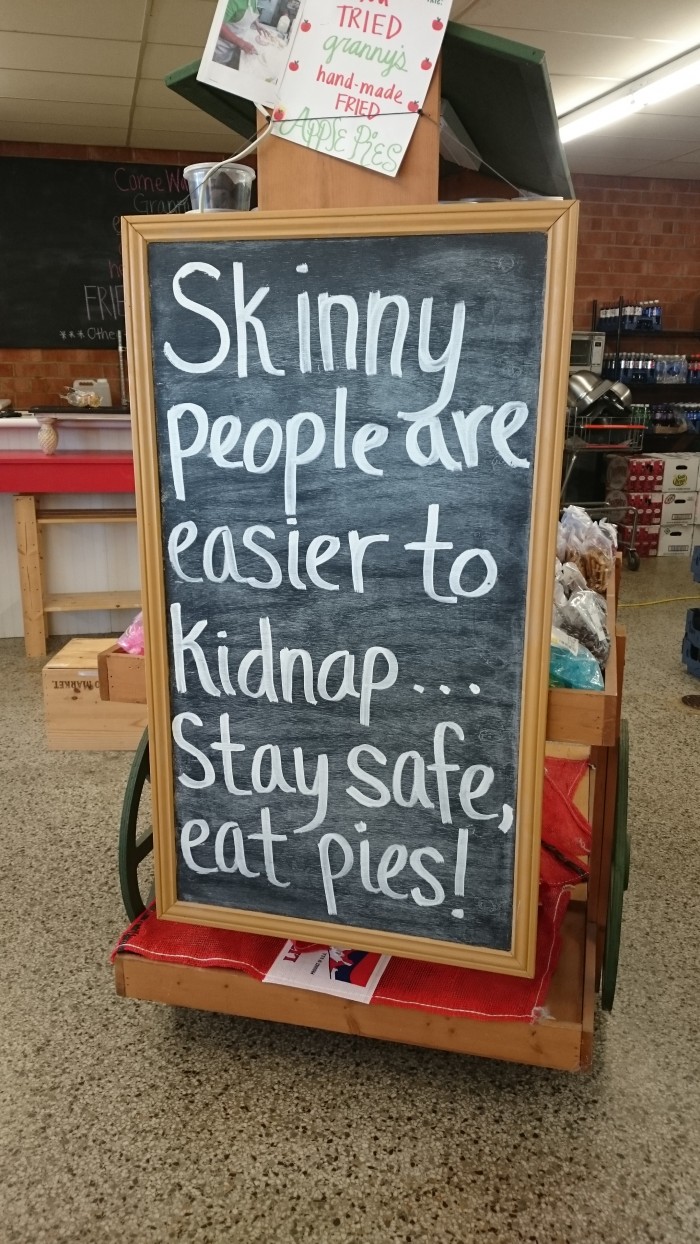 TRIED
granny's
hand-made
FRIED
Apple Pies
Come
Grann
FRIE
***Othe
Skinny
people are
easier to
kidnap...
Stay safe,
eat pies!
MARKET